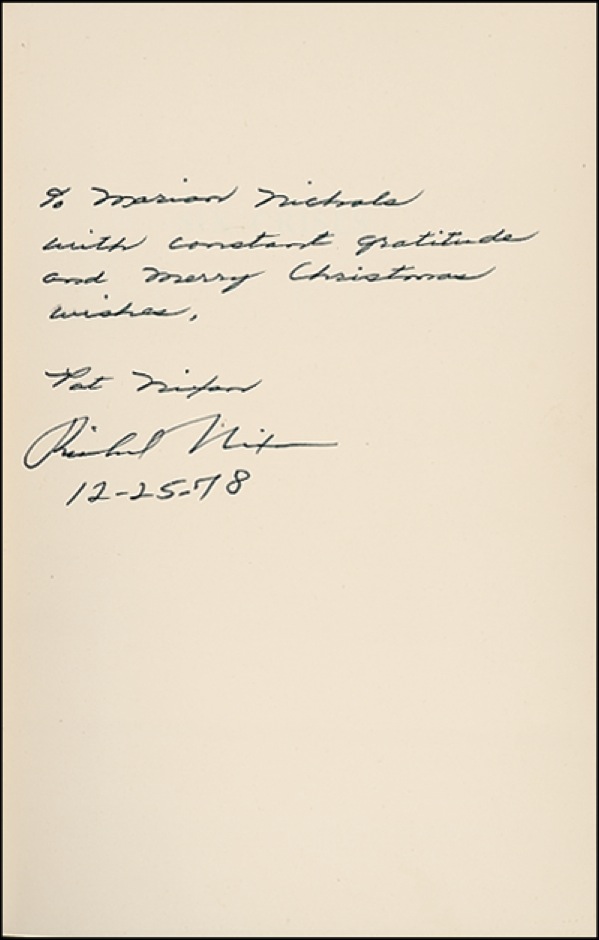 To Marian Nichols
with constant gratitude
and Merry Christmas
wishes,
Pat Nixon
Richard Nixon
12-25-78